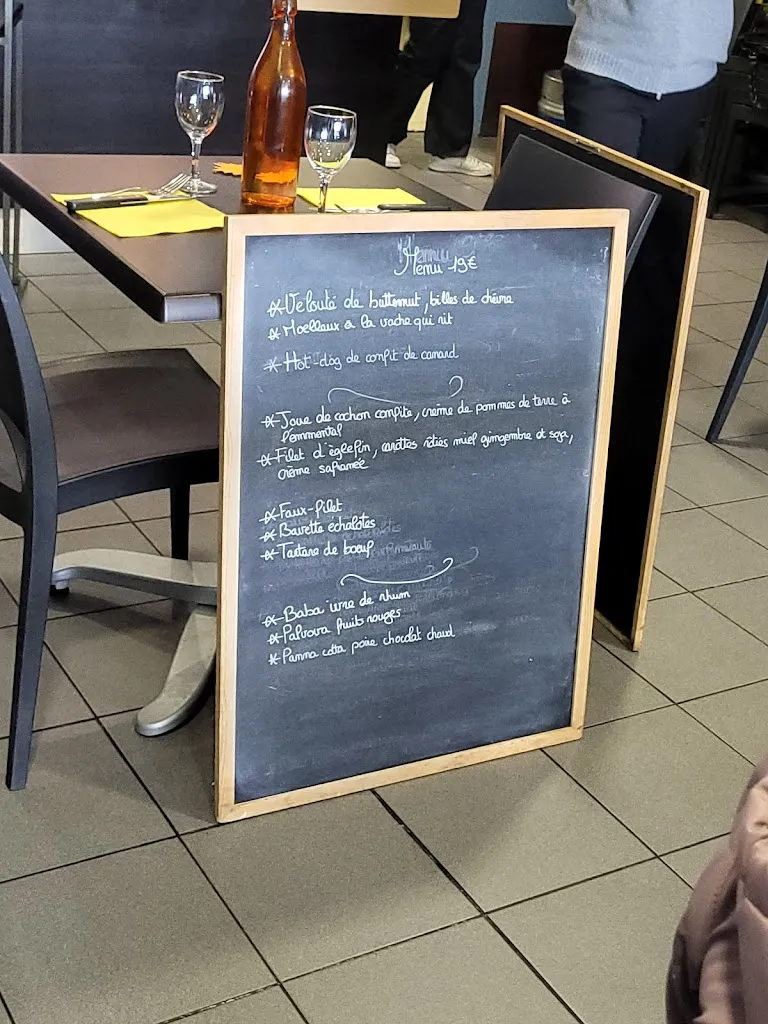 Menu 19€
* Velouté de butternut, billes de chèvre
* Moelleux à la vache qui rit
* Hot-dog de confit de canard
* Joue de cochon confite, crème de pommes de terre à
l'emmental
* Filet d'églefin, carottes rôties miel gingembre et soja,
crème safranée
* Faux-filet
* Bavette échalotes
* Tartare de boeuf
* Baba ivre de rhum
* Palvova fruits rouges
* Panna cotta poire chocolat chaud